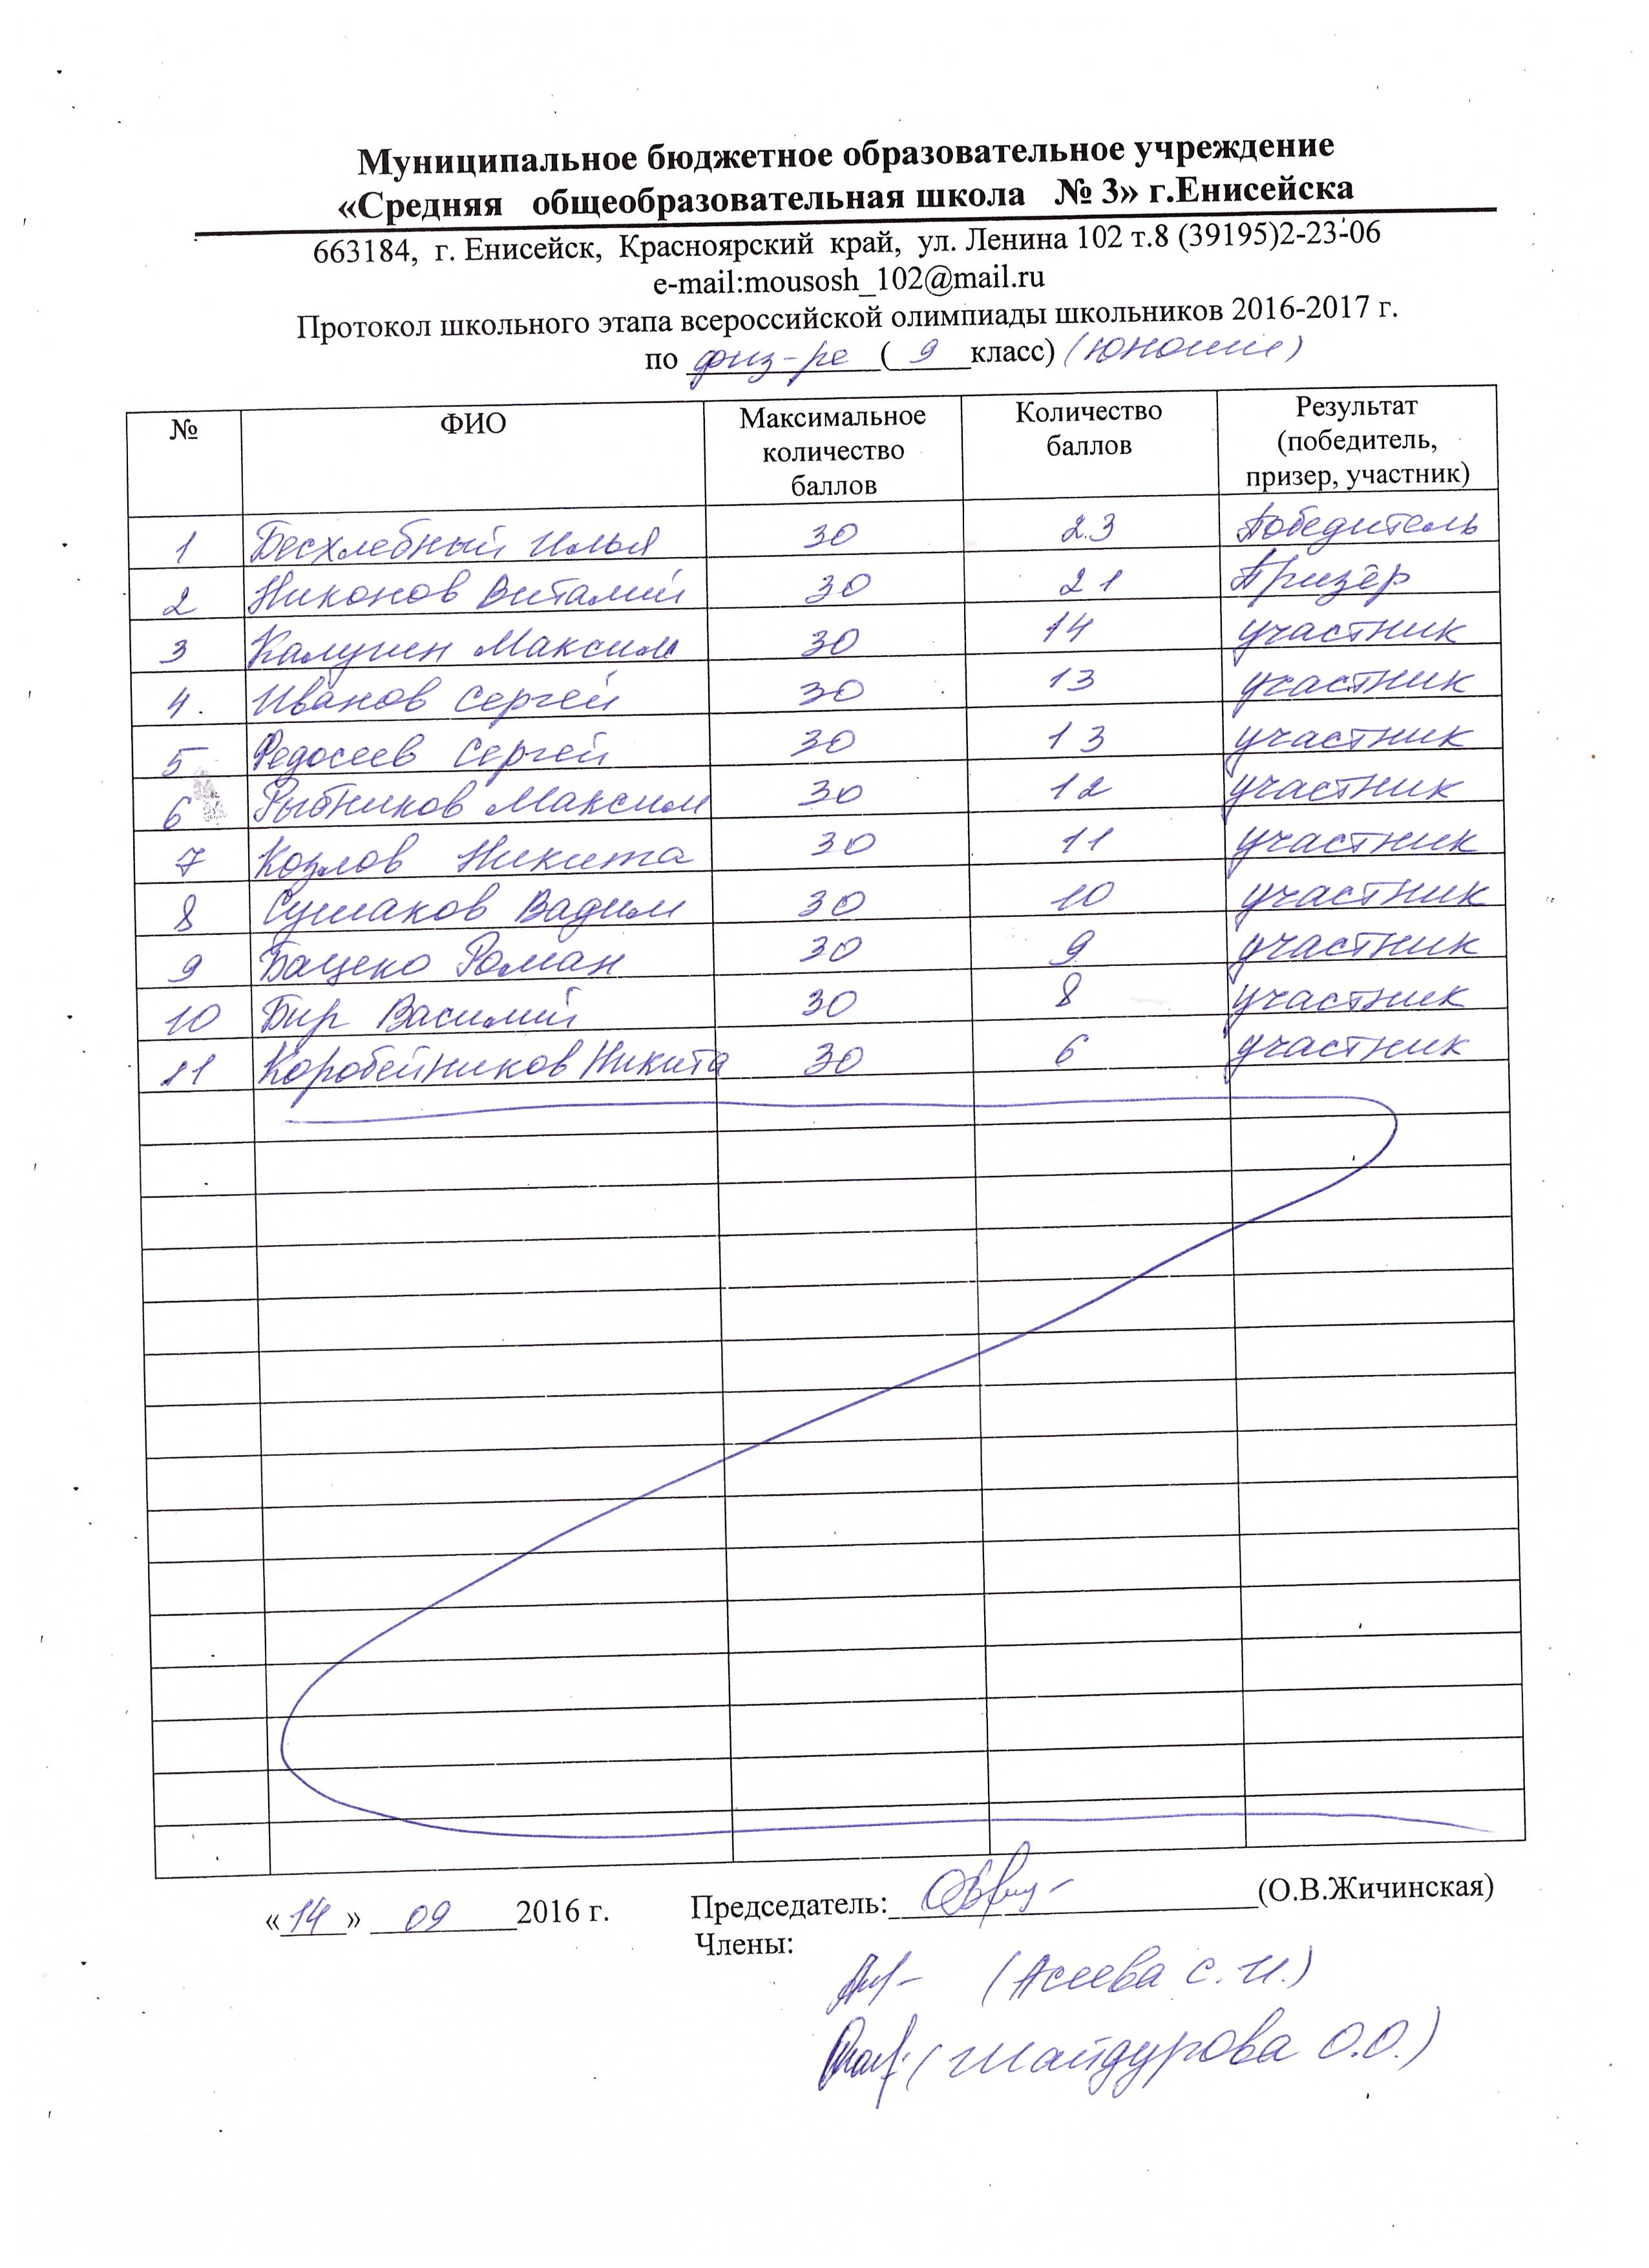 Муниципальное бюджетное образовательное учреждение
«Средняя общеобразовательная школа № 3» г.Енисейска
663184, г. Енисейск, Красноярский край, ул. Ленина 102 т.8 (39195)2-23-06
e-mail:mousosh_102@mail.ru
Протокол школьного этапа всероссийской олимпиады школьников 2016-2017 г.
по физ-ре (9 класс) (юноши)
№ ФИО Максимальное количество баллов Количество баллов Результат (победитель, призер, участник)
1 Бесхлебный Илья 30 23 Победитель
2 Никонов Виталий 30 21 Призёр
3 Калугин Максим 30 14 участник
4. Иванов Сергей 30 13 участник
5 Федосеев Сергей 30 13 участник
6 Рыбников Максим 30 12 участник
7 Козлов Никита 30 11 участник
8 Сушаков Вадим 30 10 участник
9 Бацеко Роман 30 9 участник
10 Бир Василий 30 8 участник
11 Коробейников Никита 30 6 участник
«14» 09 2016 г. Председатель: (О.В.Жичинская)
Члены:
(Асеева С.И.)
(Шайдурова О.О.)